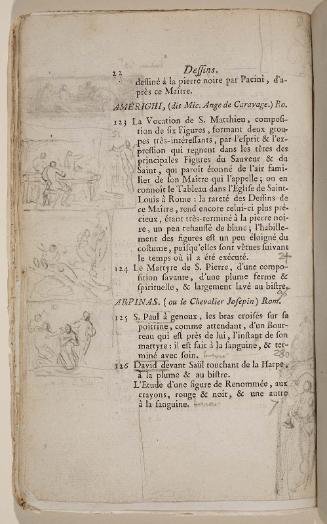 22 Dessins.
dessiné à la pierre noire par Pacini, d'a-
près ce Maître.
AMERIGHI, (dit Mic. Ange de Caravage.) Ro.
123 La Vocation de S. Matthieu, composi-
tion de six Figures, formant deux grou-
pes très-intéressants, par l'esprit & l'ex-
pression qui regnent dans les têtes des
principales Figures du Sauveur & du
Saint, qui paroît étonné de l'air fami-
lier de son Maitre qui l'appelle; on en
connoît le Tableau dans l'Eglise de Saint-
Louis à Rome: la rareté des Dessins de
ce Maître, rend encore celui-ci plus pré-
cieux, étant très-terminé à la pierre noi-
re, un peu rehaussé de blanc; l'habille-
ment des figures est un peu éloigné du
costume, puisqu'elles sont vêtues suivant
le temps où il a été exécuté. 24
124 Le Martyre de S. Pierre, d'une compo-
sition savante, d'une plume ferme &
spirituelle, & largement lavé au bistre.
ARPINAS. (ou le Chevalier Josepin) Rom.
125 S. Paul à genoux, les bras croisés sur sa
poitrine, comme attendant, d'un Bour-
reau qui est près de lui, l'instant de son
martyre: il est fait à la sanguine, & ter-
miné avec soin.
126 David devant Saül touchant de la Harpe,
à la plume & au bistre.
L'Etude d'une figure de Renommée, aux
crayons, rouge & noir, & une autre
à la sanguine.